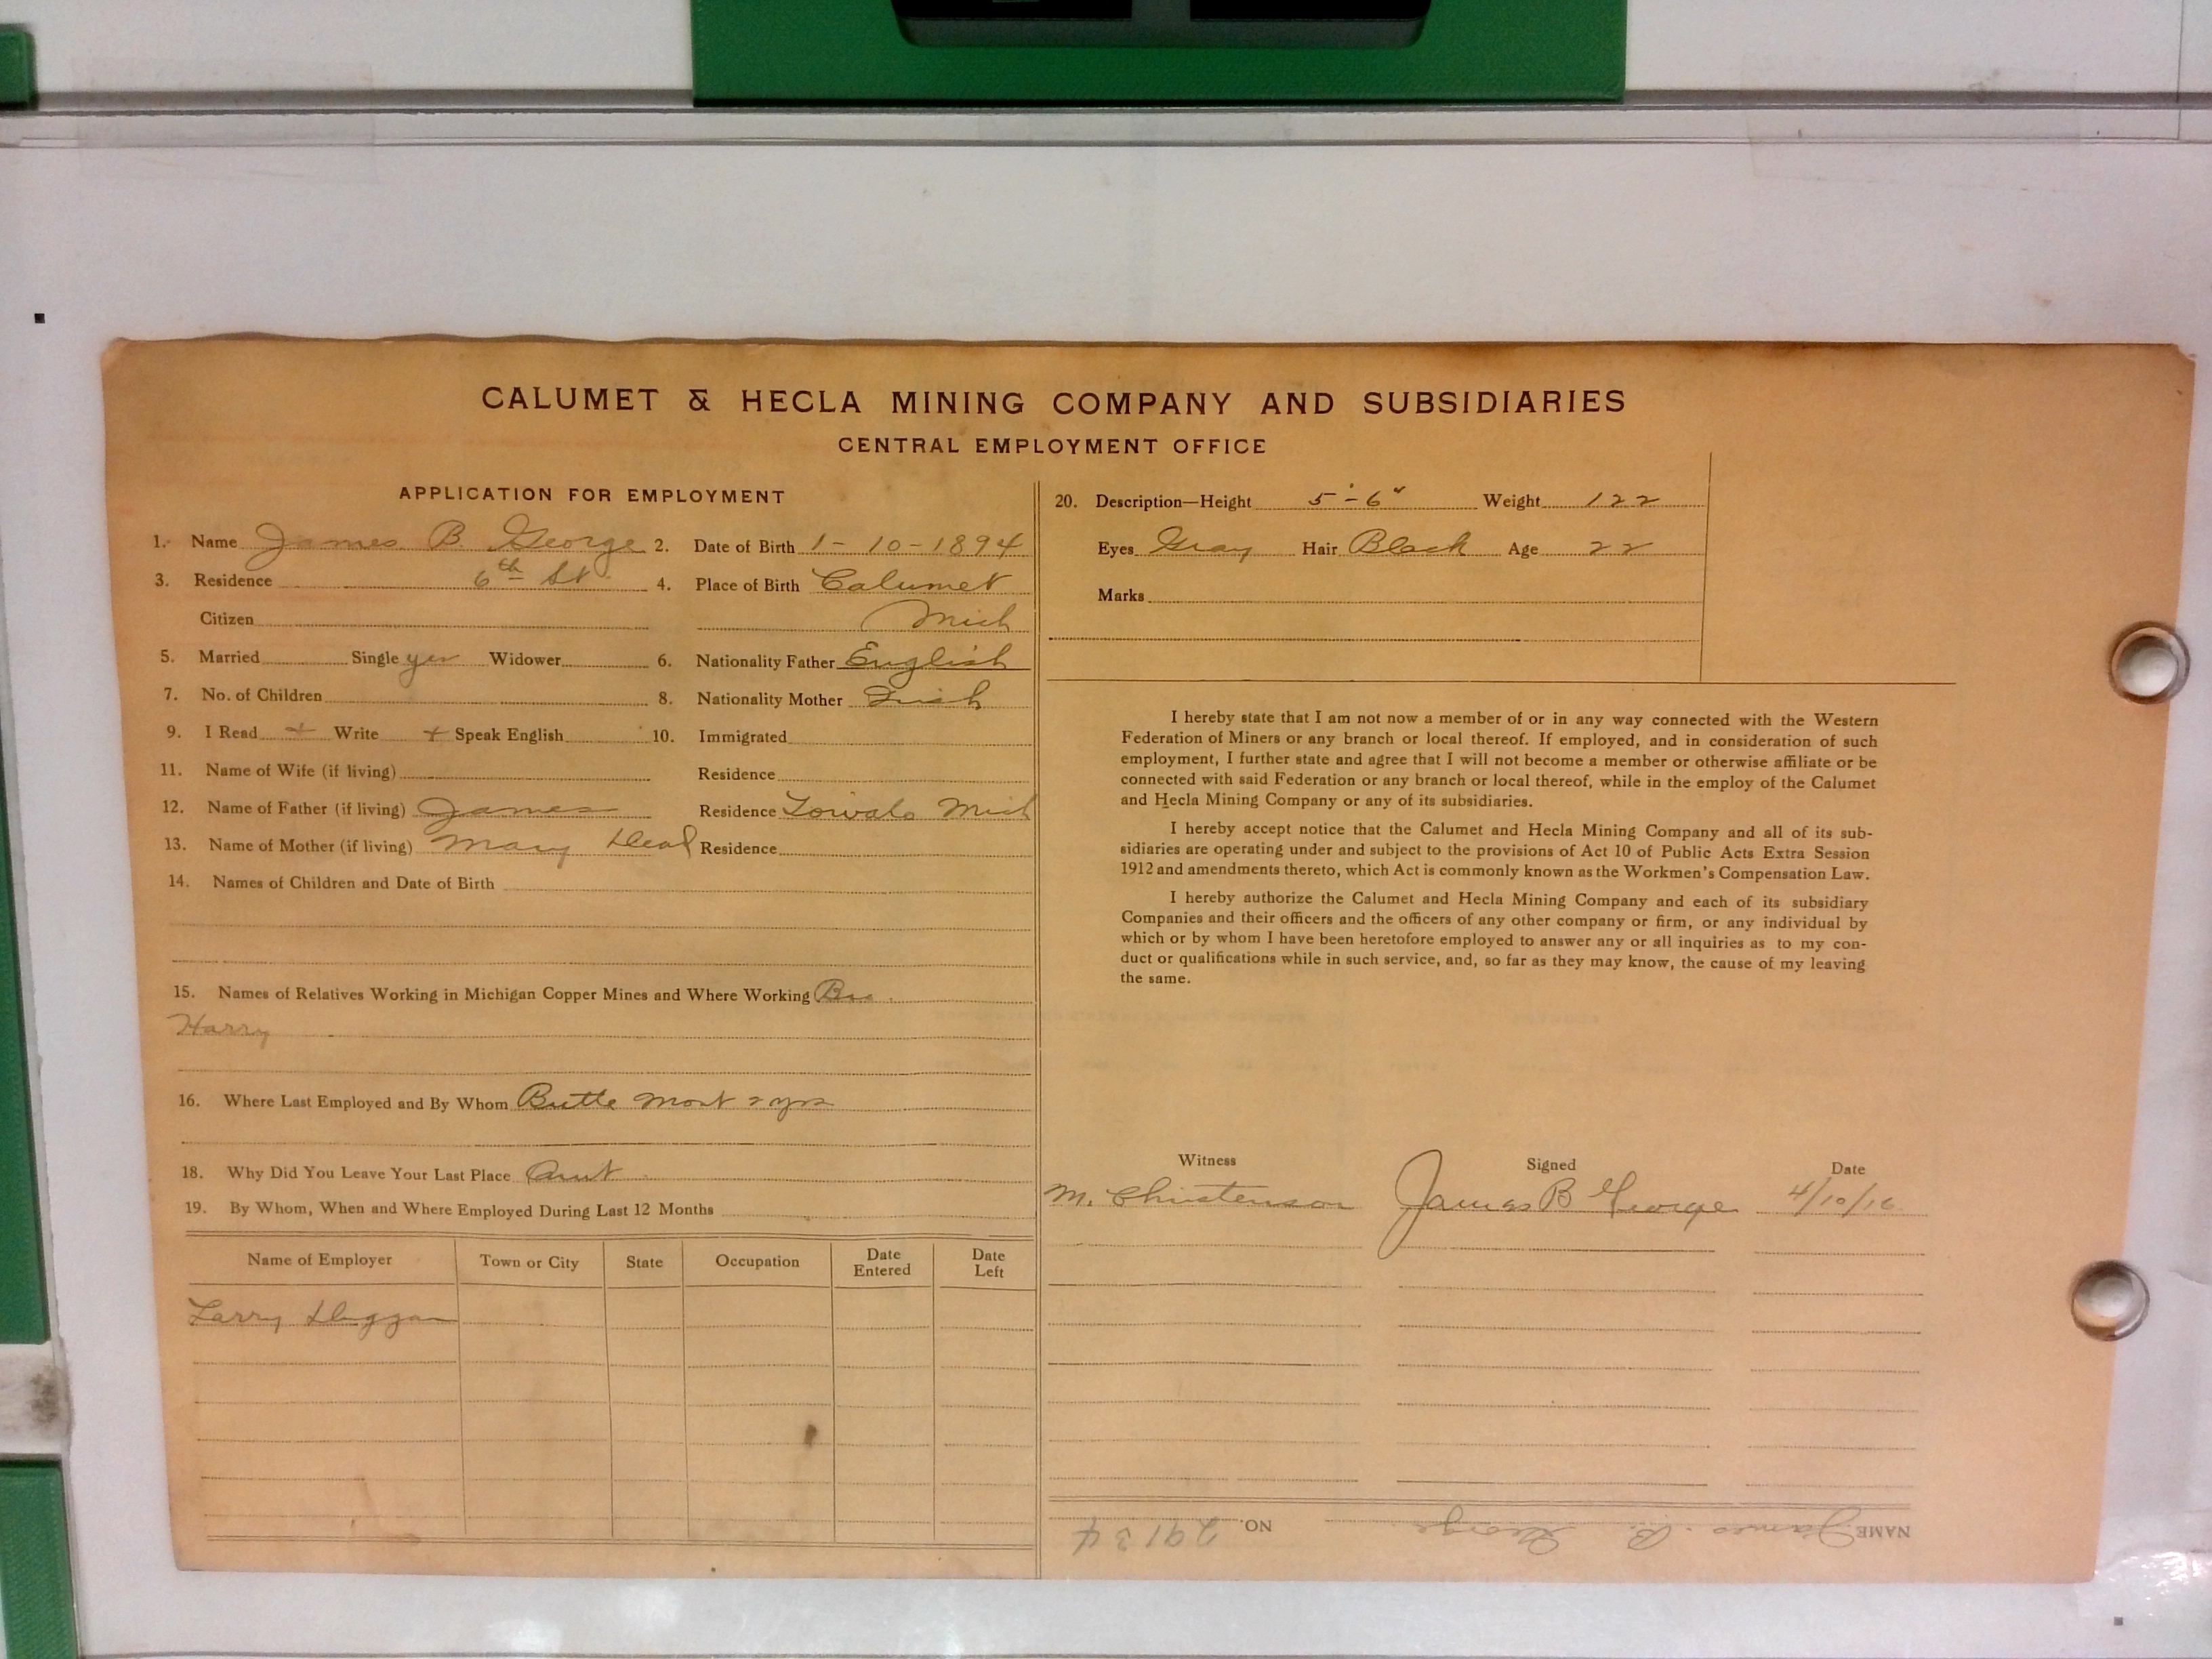 CALUMET & HECLA MINING COMPANY AND SUBSIDIARIES
CENTRAL EMPLOYMENT OFFICE
APPLICATION FOR EMPLOYMENT
1. Name James B George 2. Date of Birth 1-10-1894
3. Residence 6th St. 4. Place of Birth Calumet
Citizen Mich
5. Married Single yes Widower 6. Nationality Father English
7. No. of Children 8. Nationality Mother Irish
9. I Read + Write + Speak English 10. Immigrated
11. Name of Wife (if living) Residence
12. Name of Father (if living) James Residence Mich
13. Name of Mother (if living) Mary Dead Residence
14. Names of Children and Date of Birth
15. Names of Relatives Working in Michigan Copper Mines and Where Working Bro.
Harry
16. Where Last Employed and By Whom Butte Mont 2 yrs
18. Why Did You Leave Your Last Place
19. By Whom, When and Where Employed During Last 12 Months
Name of Employer Town or City State Occupation Date Entered Date Left
Larry Duggan
20. Description—Height 5'-6" Weight 122
Eyes Gray Hair Black Age 22
Marks
I hereby state that I am not now a member of or in any way connected with the Western
Federation of Miners or any branch or local thereof. If employed, and in consideration of such
employment, I further state and agree that I will not become a member or otherwise affiliate or be
connected with said Federation or any branch or local thereof, while in the employ of the Calumet
and Hecla Mining Company or any of its subsidiaries.
I hereby accept notice that the Calumet and Hecla Mining Company and all of its sub-
sidiaries are operating under and subject to the provisions of Act 10 of Public Acts Extra Session
1912 and amendments thereto, which Act is commonly known as the Workmen's Compensation Law.
I hereby authorize the Calumet and Hecla Mining Company and each of its subsidiary
Companies and their officers and the officers of any other company or firm, or any individual by
which or by whom I have been heretofore employed to answer any or all inquiries as to my con-
duct or qualifications while in such service, and, so far as they may know, the cause of my leaving
the same.
Witness Signed Date
M. Christenson James B George 4/10/16
NAME James B. George NO. 29134